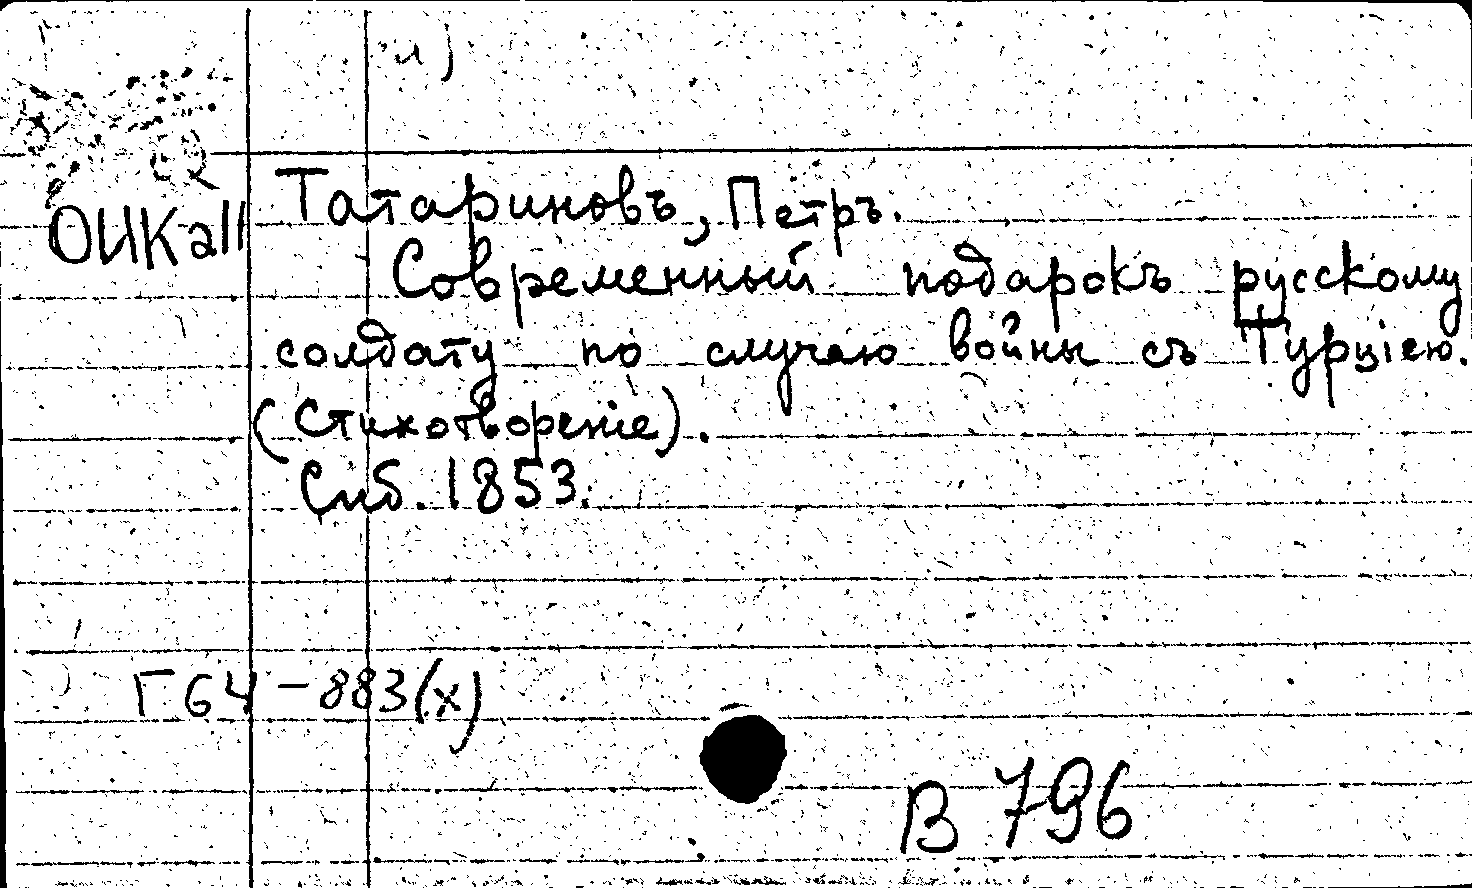 Татариновъ, Петръ.
Современный подарокъ русскому
солдату по случаю войны съ Турціею.
(Стихотвореніе).
Спб. 1853.
Г64-883(х)
В 796